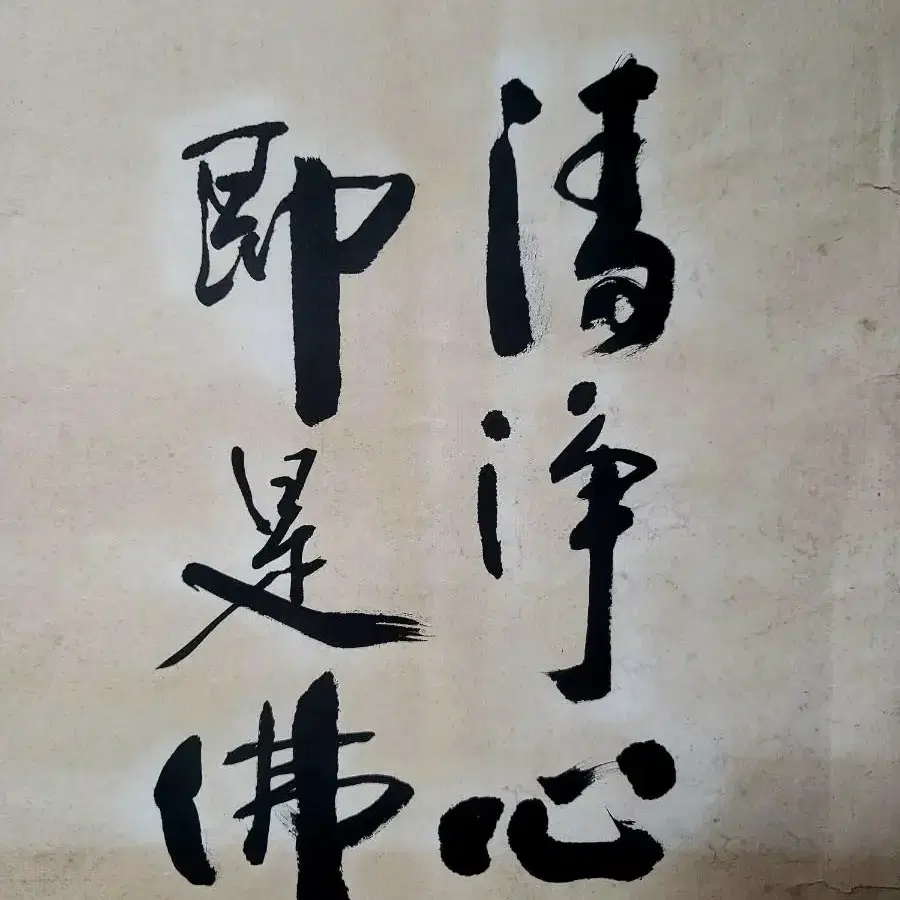 清浄心
即是佛